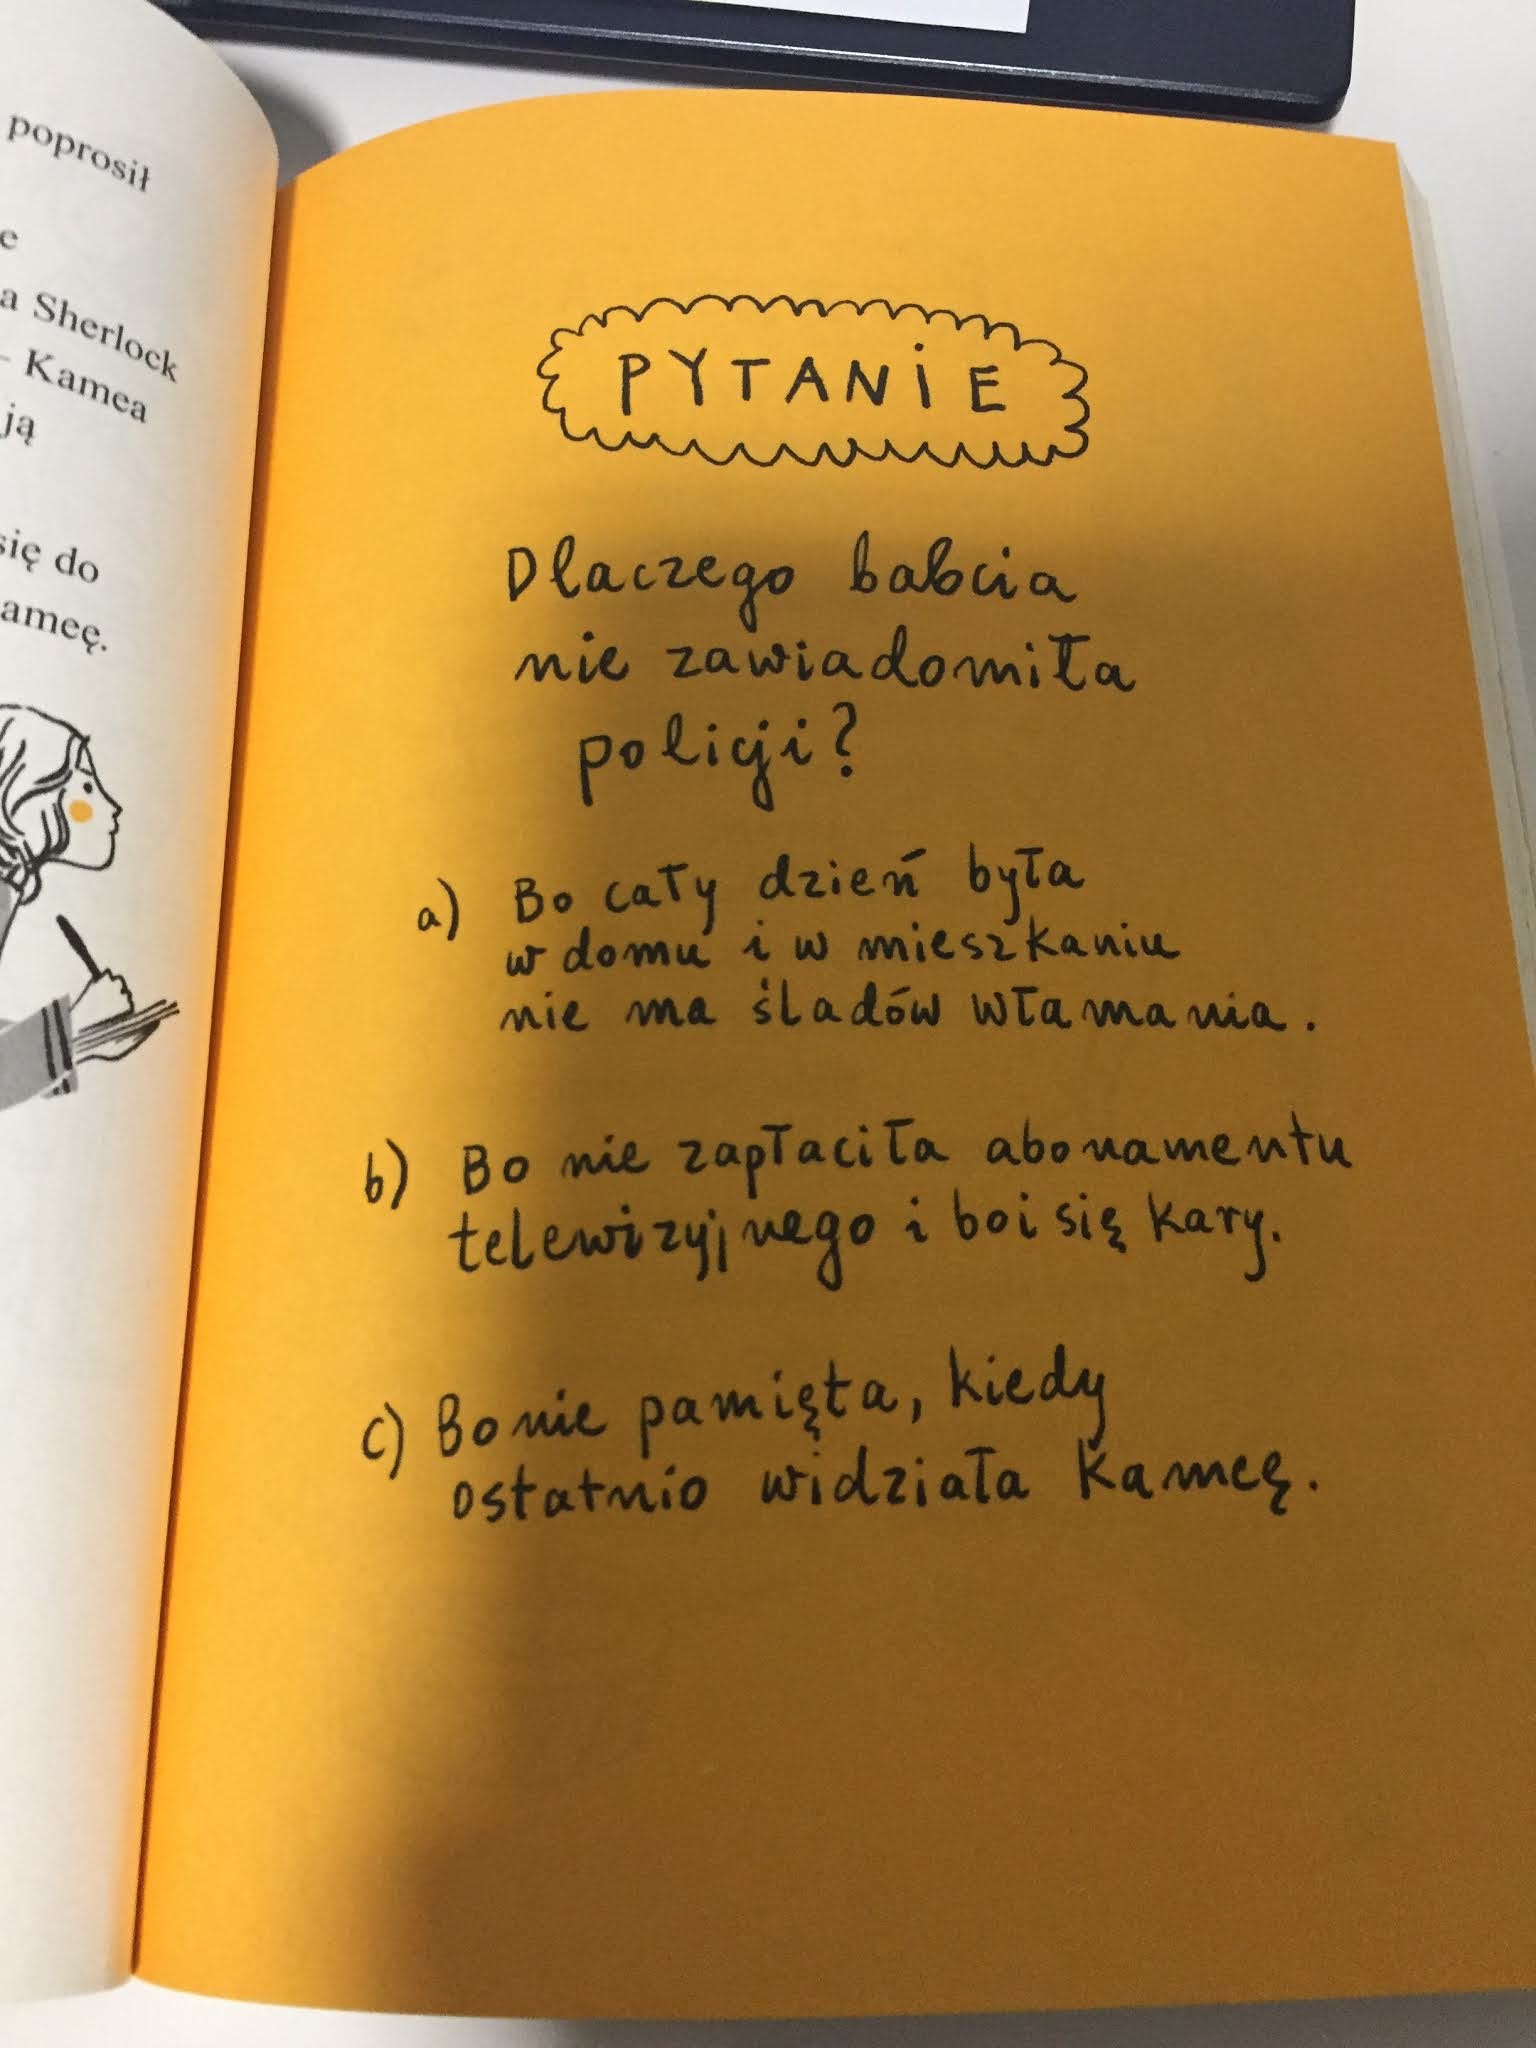 poprosił
e
a Sherlock
– Kamea
ją
się do
ameę.
PYTANIE
Dlaczego babcia
nie zawiadomiła
policji?
a) Bo cały dzień była
w domu i w mieszkaniu
nie ma śladów włamania.
b) Bo nie zapłaciła abonamentu
telewizyjnego i boi się kary.
c) Bo nie pamięta, kiedy
ostatnio widziała Kameę.